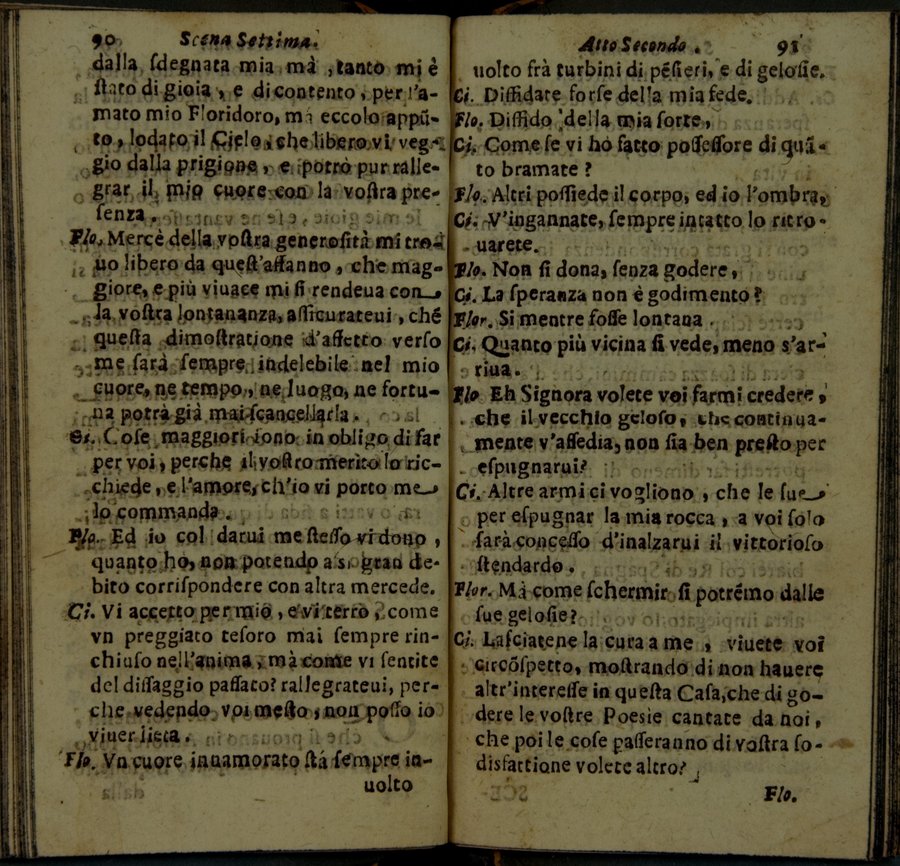 90 Scena Settima.
dalla ſdegnata mia mà, tanto mi è
ſtato di gioia, e di contento, per l'a-
mato mio Floridoro, ma eccolo appũ-
to, lodato il Cielo, che libero vi veg-
gio dalla prigione, e potrò pur ralle-
grar il mio cuore con la voſtra pre-
ſenza.
Flo. Mercè della voſtra generoſità mi tro-
uo libero da queſt'affanno, che mag-
giore, e più viuace mi ſi rendeua con
la voſtra lontananza, aſſicurateui, chê
queſta dimoſtratione d'affetto verſo
me ſarà ſempre indelebile nel mio
cuore, ne tempo, ne luogo, ne fortu-
na potrà già mai ſcancellarla.
Ci. Coſe maggiori ſono in obligo di far
per voi, perche il voſtro merito lo ric-
chiede, e l'amore, ch'io vi porto me
lo commanda.
Flo. Ed io col darui me ſteſſo vi dono,
quanto hò, non potendo à sì gran de-
bito corriſpondere con altra mercede.
Ci. Vi accetto per mio, e vi terrò, come
vn preggiato teſoro mai ſempre rin-
chiuſo nell'anima, mà come vi ſentite
del diſſaggio paſſato? rallegrateui, per-
che vedendo voi meſto, non poſſo io
viuer lieta.
Flo. Vn cuore innamorato ſtá ſempre in-
uolto
Atto Secondo. 91
uolto frà turbini di pẽſieri, e di geloſie.
Ci. Diffidate forſe della mia fede.
Flo. Diffido della mia ſorte,
Ci. Come ſe vi ho fatto poſſeſſore di quã-
to bramate?
Flo. Altri poſſiede il corpo, ed io l'ombra,
Ci. V'ingannate, ſempre intatto lo ritro-
uarete.
Flo. Non ſi dona, ſenza godere,
Ci. La ſperanza non è godimento?
Flor. Si mentre foſſe lontana.
Ci. Quanto più vicina ſi vede, meno s'ar-
riua.
Flo Eh Signora volete voi farmi credere,
che il vecchio geloſo, che continua-
mente v'aſſedia, non ſia ben preſto per
eſpugnarui?
Ci. Altre armi ci vogliono, che le ſue
per eſpugnar la mia rocca, a voi ſolo
ſarà conceſſo d'inalzarui il vittorioſo
ſtendardo.
Flor. Mà come ſchermir ſi potrẽmo dalle
ſue geloſie?
Ci. Laſciatene la cura a me, viuete voi
circõſpetto, moſtrando di non hauere
altr'intereſſe in queſta Caſa, che di go-
dere le voſtre Poesie cantate da noi,
che poi le coſe paſſeranno di voſtra ſo-
disfattione volete altro?
Flo.